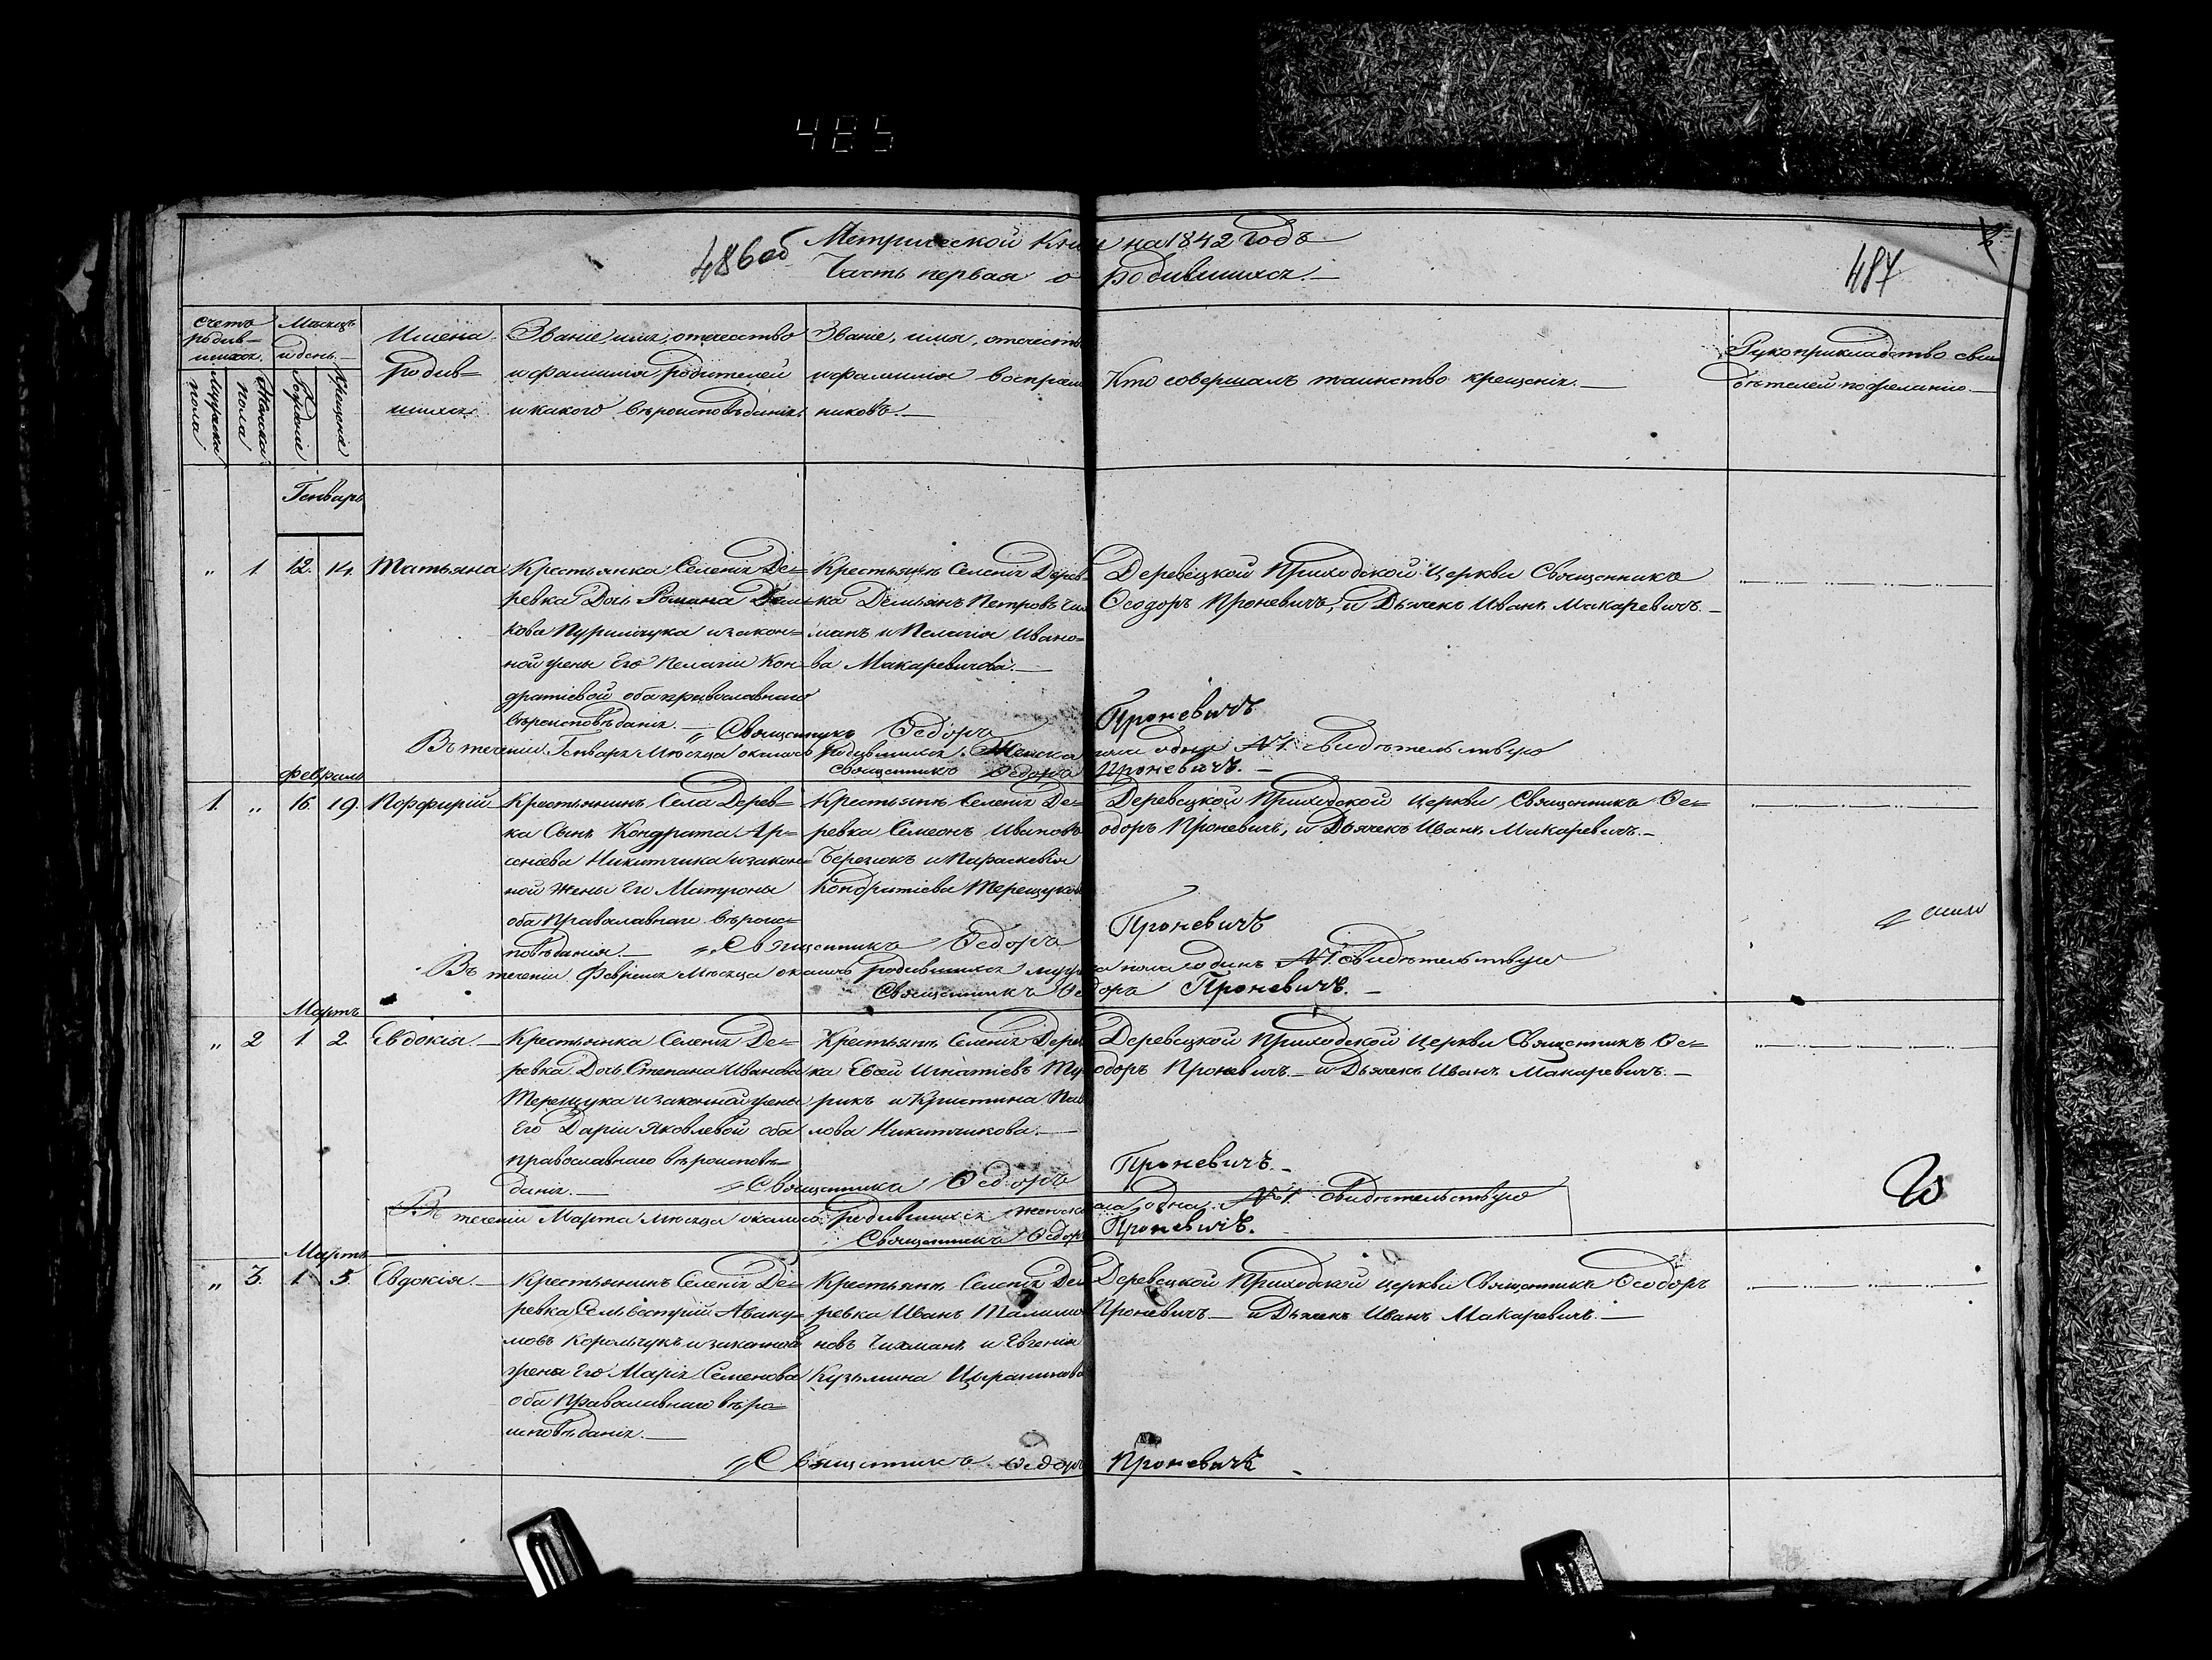 485
Метрической Книги на 1842 годъ
486 об
487
Часть первая о родившихся.
Счетъ родив-шихся.
Мужска пола
Женска пола
Месяцъ и день.
Рожденія
Крещенія
Имена родив=шихся.
Званіе, имя, отчество
и фамилія родителей
и какого вѣроисповѣданія.
Званіе, имя, отчество
и фамилія воспріем
никовъ.
Кто совершалъ таинство крещенія.
Рукоприкладство сви
дѣтелей по желанію.
Генварь
" 1 12. 14. Татьяна
Крестьянка Селенія Де=
ревка Дочь Романа Яков
кова Пурильчука и закон=
ной жены Его Пелагіи Кон=
дратіевой оба православнаго
вѣроисповѣданія.
Крестьянъ Селенія Дерев=
ка Демьянъ Петровъ Чих
манъ и Пелагія Ивано=
ва Макаревичова.
Деревецкой Приходской Церкви Священникъ
Феодоръ Проневичъ, и Дьячекъ Иванъ Макаревичъ.
Священникъ Федоръ Проневичъ
Въ теченіи Генваря Месяца оказалось родившихся Женска пола одна №1. Свидѣтельствую
Священникъ Федоръ Проневичъ.
Февраль
1. " 16 19. Порфирій
Крестьянинъ Села Дерев=
ка Сынъ Кондрата Ар=
сеніева Никитчика и закон=
ной жены Его Матроны
оба Православнаго вѣроис=
повѣданія.
Крестьянъ Селенія Де=
ревка Симеонъ Ивановъ
Березюкъ и Параскевія
Кондратіева Терещукова
Деревецкой Приходской Церкви Священникъ Фе=
одоръ Проневичъ, и Дьячекъ Иванъ Макаревичъ.
Священникъ Федоръ Проневичъ
Въ теченіи Февраля Месяца оказалось родившихся мужска пола одинъ №1. Свидѣтельствую
Священникъ Федоръ Проневичъ.
Мартъ
" 2 1 2 Евдокія.
Крестьянка Селенія Де=
ревка Дочь Степана Иванова
Терещука и законной жены
Его Даріи Яковлевой оба
православнаго вѣроисповѣ=
данія.
Крестьянъ Селенія Дерев
ка Евсей Игнатіевъ Ту
рикъ и Кристина Пав
лова Никитчикова.
Деревецкой Приходской Церкви Священникъ Фе=
одоръ Проневичъ. и Дьячекъ Иванъ Макаревичъ.
Священникъ Федоръ Проневичъ.
Въ теченіи Марта Месяца оказалось родившихся женска пола одна. №1. Свидѣтельствую
Священникъ Федоръ Проневичъ.
Мартъ
" 3. 1. 5. Евдокія.
Крестьянинъ Селенія Де=
ревка Сельвестрій Аваку=
мовъ Корольчукъ и законной
жены Его Марія Семенова
оба Православнаго вѣро=
исповѣданія.
Крестьянъ Селенія Де
ревка Иванъ Талимо
новъ Чихманъ и Евгенія
Кузьмина
Деревецкой Приходской Церкви Священникъ Феодоръ
Проневичъ и Дьячекъ Иванъ Макаревичъ.
Священникъ Федоръ Проневичъ